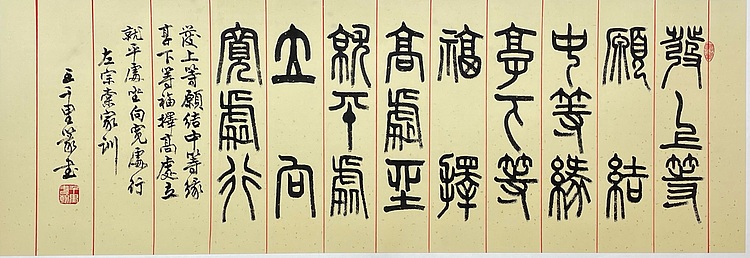 發上等
願結
中等緣
享下等
福擇
高處坐
就平處
立向
寬處行
發上等願結中等緣
享下等福擇高處立
就平處坐向寬處行
左宗棠家訓
王千里篆書